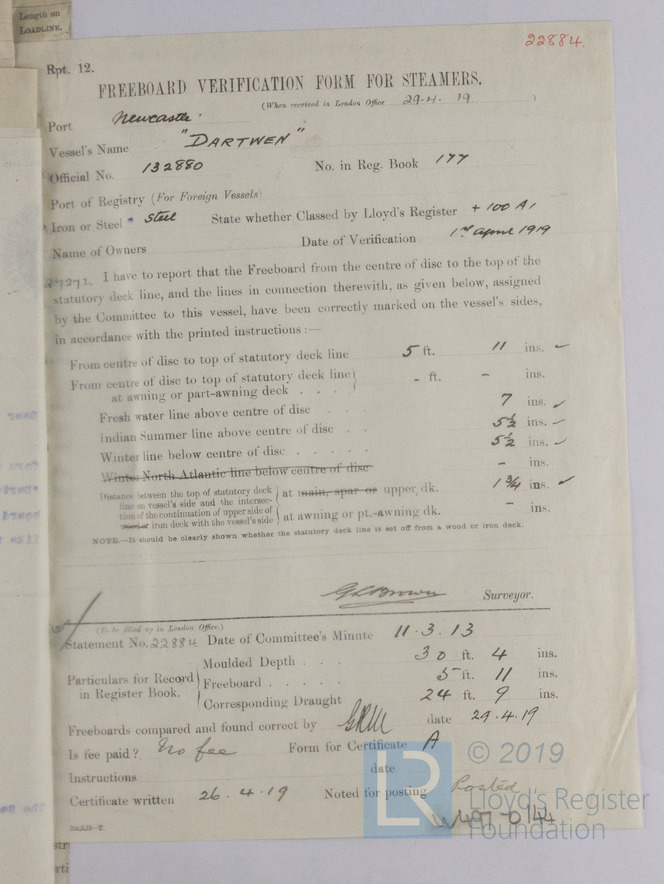 Length on
LOADLINE.
22884.
Rpt. 12.
FREEBOARD VERIFICATION FORM FOR STEAMERS.
(When received in London Office 29.4.19 )
Port Newcastle.
Vessel's Name "DARTWEN"
Official No. 132880 No. in Reg. Book 177
Port of Registry (For Foreign Vessels)
Iron or Steel * Steel State whether Classed by Lloyd's Register + 100 A1
Name of Owners Date of Verification 1st april 1919
I have to report that the Freeboard from the centre of disc to the top of the
statutory deck line, and the lines in connection therewith, as given below, assigned
by the Committee to this vessel, have been correctly marked on the vessel's sides,
in accordance with the printed instructions :—
From centre of disc to top of statutory deck line 5 ft. 11 ins.
From centre of disc to top of statutory deck line - ft. - ins.
at awning or part-awning deck . . .
Fresh water line above centre of disc . . . 7 ins.
Indian Summer line above centre of disc . . 5½ ins.
Winter line below centre of disc . . . . . 5½ ins.
Winter North Atlantic line below centre of disc - ins.
Distance between the top of statutory deck
line on vessel's side and the intersec- at main, spar or upper dk. 1¾ ins.
tion of the continuation of upper side of
wood or iron deck with the vessel's side at awning or pt.-awning dk. - ins.
NOTE.—It should be clearly shown whether the statutory deck line is set off from a wood or iron deck.
G L Brown Surveyor.
(To be filled up in London Office.)
Statement No. 22884. Date of Committee's Minute 11.3.13
Moulded Depth . . . 30 ft. 4 ins.
Particulars for Record
in Register Book. Freeboard . . . . . 5 ft. 11 ins.
Corresponding Draught 24 ft. 9 ins.
Freeboards compared and found correct by date 29.4.19
Is fee paid? No fee Form for Certificate A
Instructions date
Certificate written 26.4.19 Noted for posting Posted
W497-0144
LR
© 2019
Lloyd's Register
Foundation